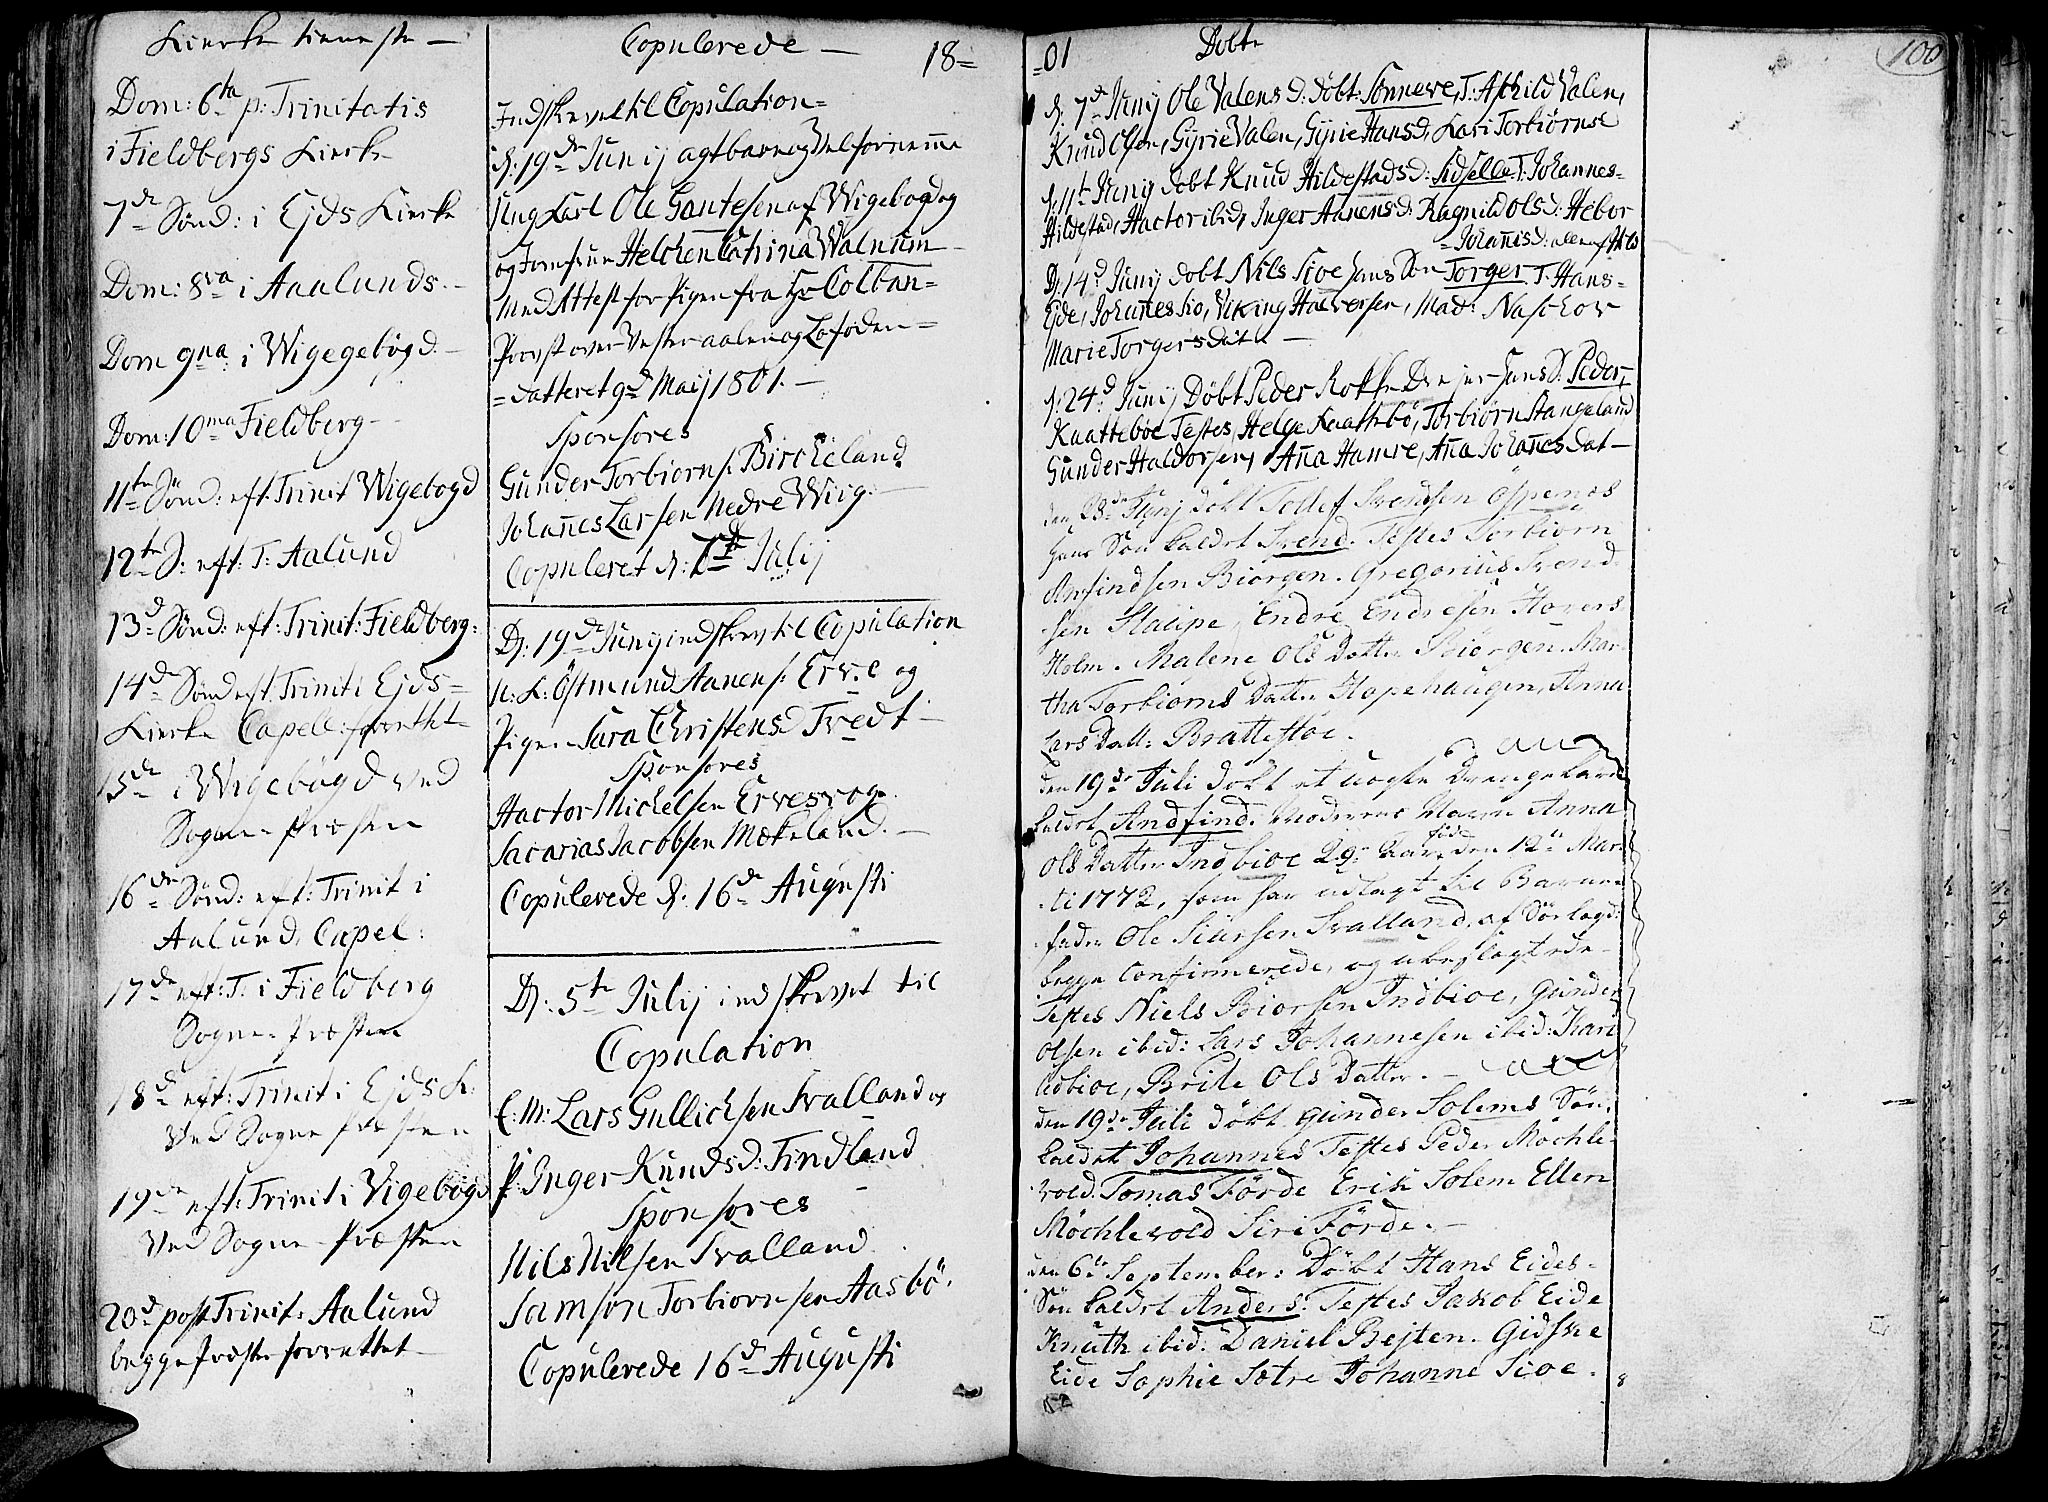 Kierke tieneste —
Dom: 6ta p: Trinitatis
i Fieldbergs Kierke
7de Sönd: i Ejds Kierke
Dom: 8va i Aaalunds. -
Dom 9na: i Wigegebögd. -
Dom: 10ma Fieldberg -
11te Sönd: eft: Trinit Wigebogd
12te S: eft: T: Aalund
13d Sönd: eft: Trinit: Fieldberg:
14d Sönd eft: Trinit i Ejds=
Kierke Capell: forrettet -
15de i Wigebögd ved
Sogne-Præsten
16de Sönd: eft: Trinit i
Aalund, Capel:
17de eft: T: i Fieldberg
Sogne-Præsten
18d eft: Trinit i Ejds K:
ved Sogne Præsten
19de eft: Trinit i Vigebögd
ved Sogne-Præsten
20d post Trinit: Aalund
begge Præster forrettet -
Copulerede —
18=
Indskrevet til Copulation=
d: 19de Junij agtbare og Velfornemme
Ung Karl Ole Gantesen af Wigebogd og
og Jomfrue Helchen Catrina Walnum
med Attest for Pigen fra Hr Colban=
Provst over Vesteraalen og Lofoden=
=datteret 9d Maij 1801. —
Sponsores
Gunder Torbiorns: Birckeland.
Johannes Larsen Nedre Wiig. -
Copuleret d: 7de Julij
D: 19de Junij indskrev til Copulation
U: K: Östmund Aanens: Erve og
Pigen Sara Christensd Tvedt -
Sponsores
Hactor Michelsen Ervesvog.
Sacarias Jacobsen Mækeland. -
Copulerede d: 16de Augusti
D: 5te Julij indskrevet til
Copulation
E: M: Lars Gullichsen Svalland og
P: Inger Knudsd: Findland
Sponsores
Nils Nilsen Svalland
Samson Torbiornsen Aasbö.
Copulerede 16de Augusti
=01
Döbte
100
d: 7d Junij Ole Valens d: döbt: Sönneve, T: Askild Valen,
Knud Olsen, Gÿrie Valen, Gÿrie Hansd, Kari Torbiörnsd
d: 11te Junij döbt Knud Hildestads d: Sidselle T: Johannes=
Hildestad, Hactor ibid, Inger Aanensd: Ragnild Olsd: Hebor
=Johannisd:
D: 14d Junij döbt Nils Sioe hans Sön Torger T: Hans=
Ejde, Johannes Sio, Viking Halversen, Mad: Naschow
Marie Torgersdatt: —
d: 24d Junij Döbt Peder Rokke Drejer hans d: Peder,
Kaatteboe Testes, Helge Kaattebö, Torbiörn Stangeland
Gunder Haldorsen, Anna Hamre, Anna Johannes dat —
den 28de Junj döbt Tollef Svendsen Öspenes
hans Sön kaldet Svend. Testes Torbiörn
Arnfindsen Biörgen. Gregorius Svend=
sen Staupe, Endre Endresen Hovers
Holm. Malene Ols Datter Biörgen. Mar=
tha Torbiorns Datter Hopehaugen, Anna
Lars Datt: Brattestoe.
den 19de Juli döbt et uægte Drengebarn
kaldet Andfind. Moderens Navn Anna
Ols Datter Indbioe 29 Aar, föd den 12te Mar=
tii 1772, som har udlagt til Barne=
fader Ole Siursen Svalland, af Sörlagd:
begge Confirmerede, og ubeslægtede -
Testes Niels Biorsen Indbioe, Gunder
Olsen ibid: Lars Johannesen ibid: Kari
Udbioe, Brite Ols Datter. -
den 19de Juli döbt Gunder Solems Sön,
kaldet Johannes Testes Peder Möchle=
vold. Tomas Förde Erik Solem Ellen
Möchlevold Siri Förde. -
den 6te September: Döbt Hans Eides-
Sön kaldet Anders. Testes Jakob Eide
Knuth ibid: Daniel Bejten. Gidske
Eide Sophie Sætre Johanne Sioe.